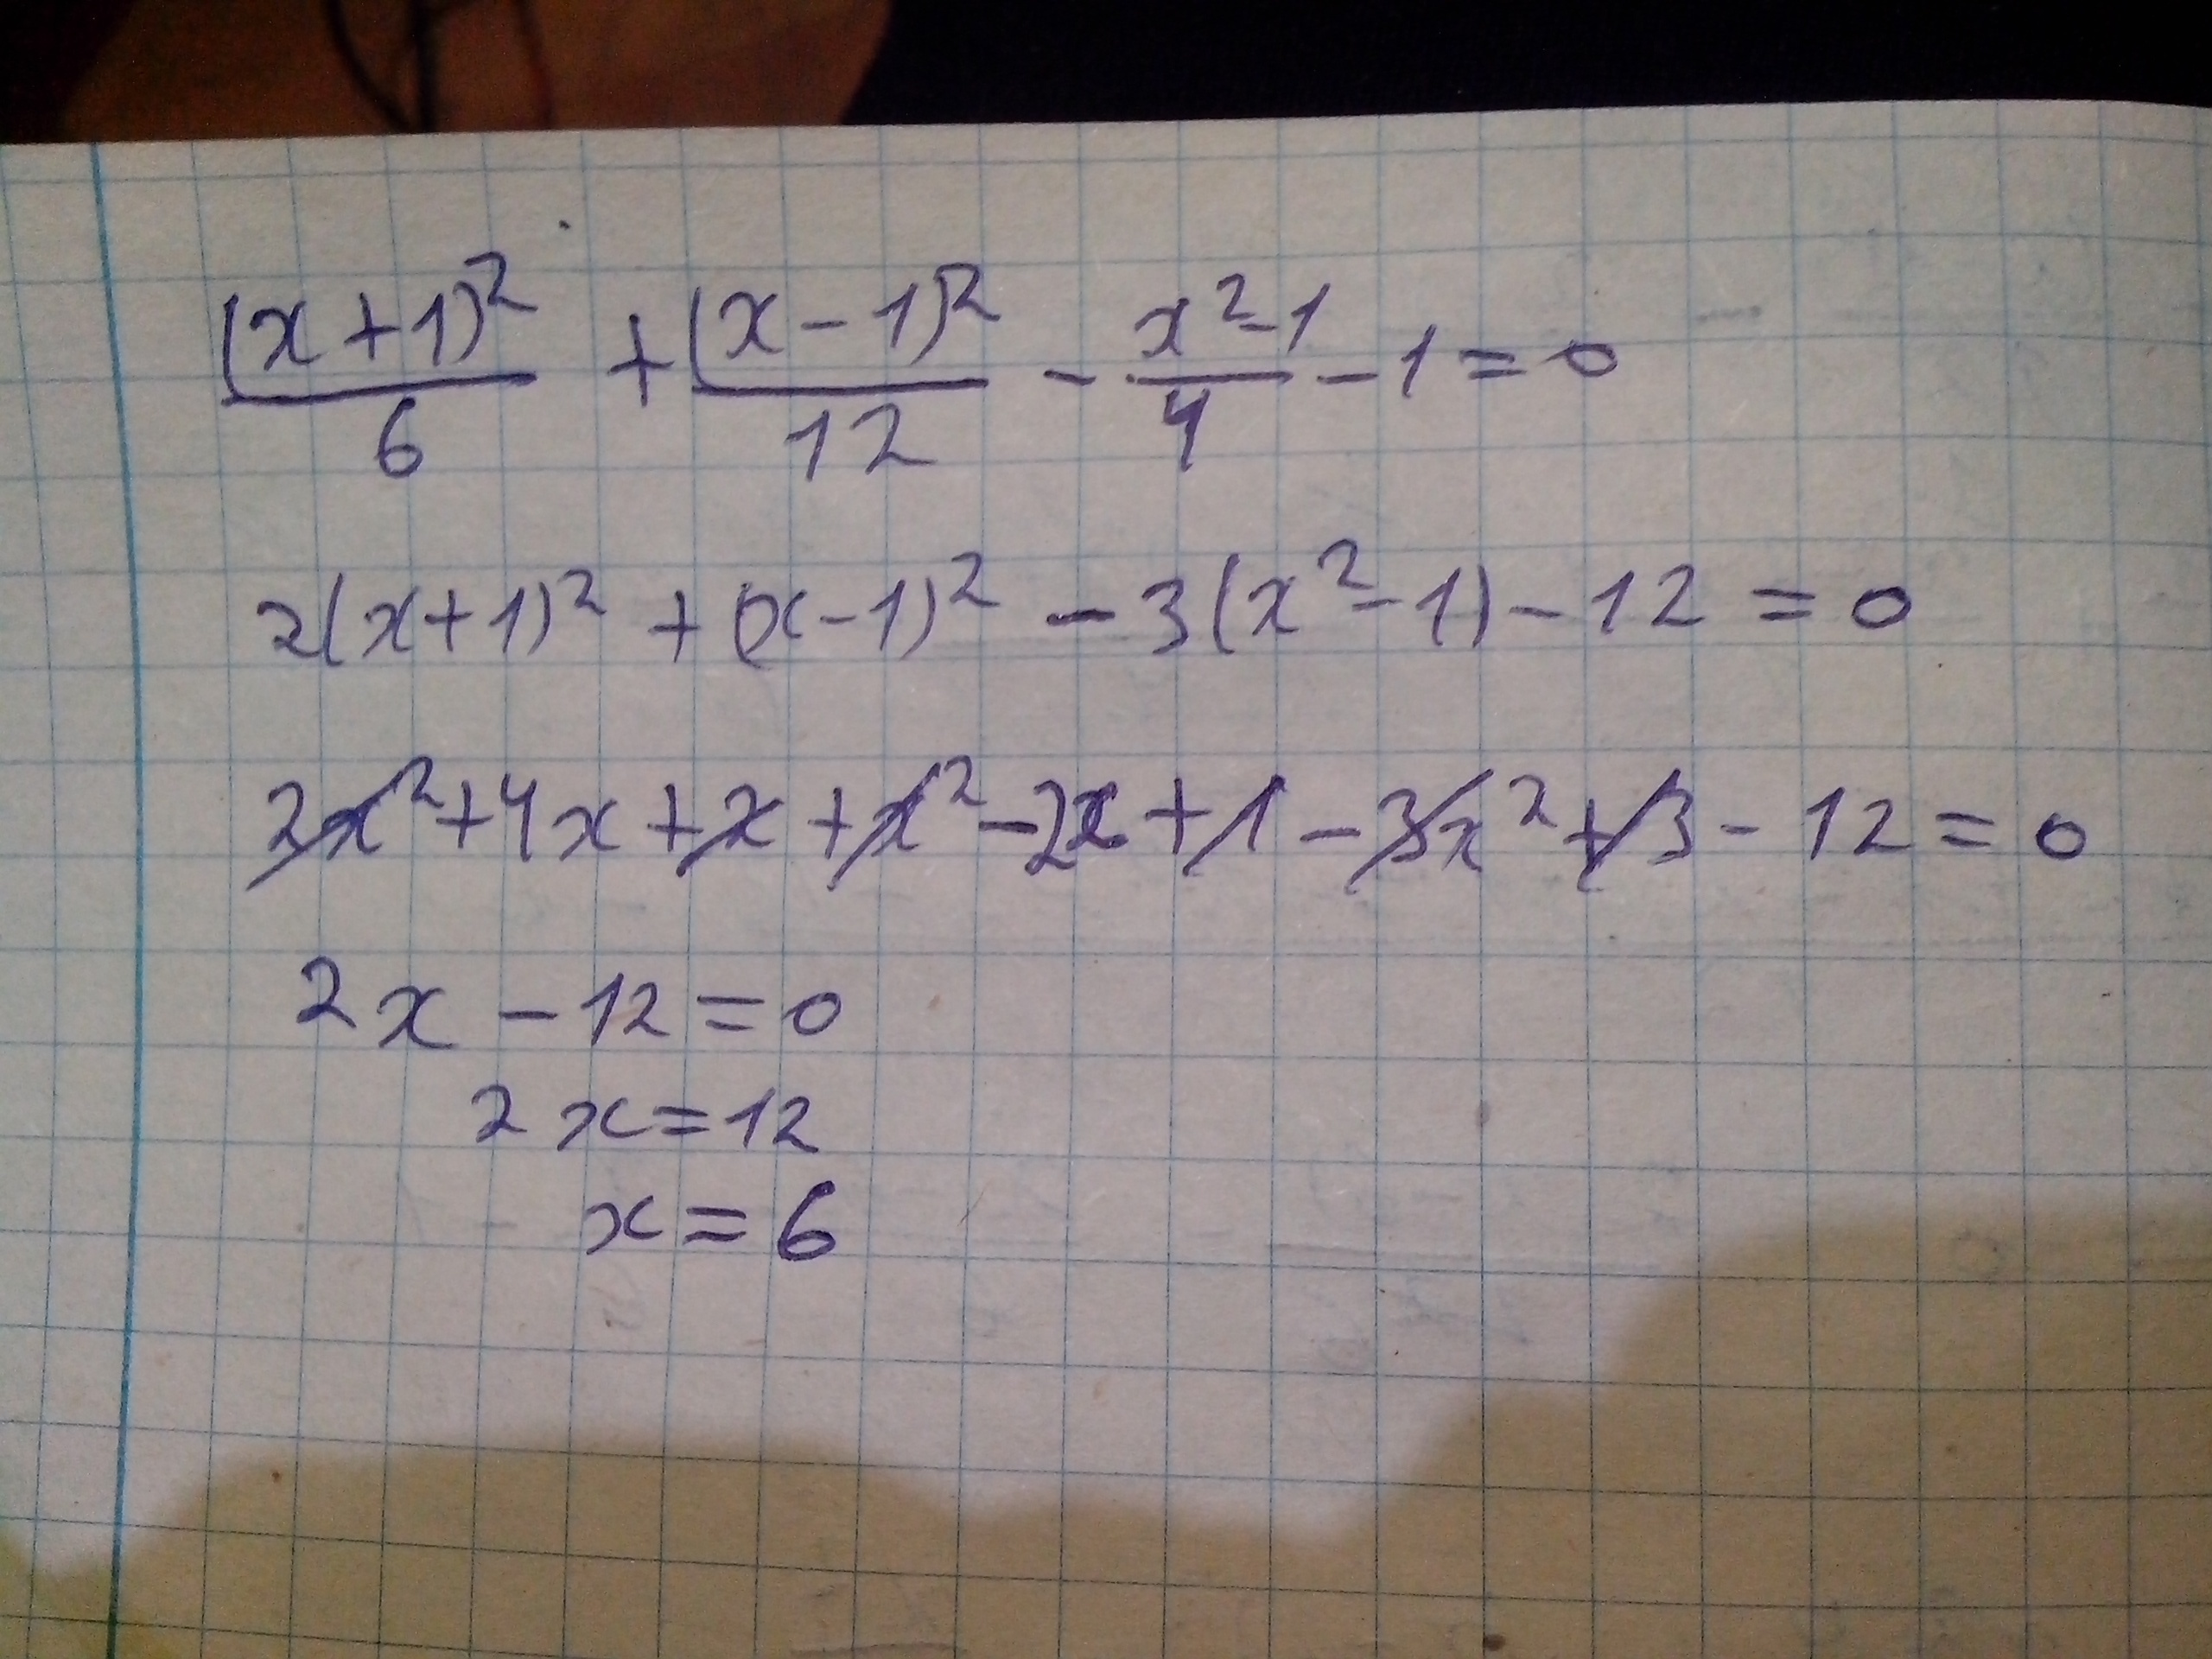 (x+1)²/6 + (x-1)²/12 - x²-1/4 - 1 = 0
2(x+1)² + (x-1)² - 3(x²-1) - 12 = 0
2x² + 4x + x + x² - 2x + 1 - 3x² + 3 - 12 = 0
2x - 12 = 0
2x = 12
x = 6